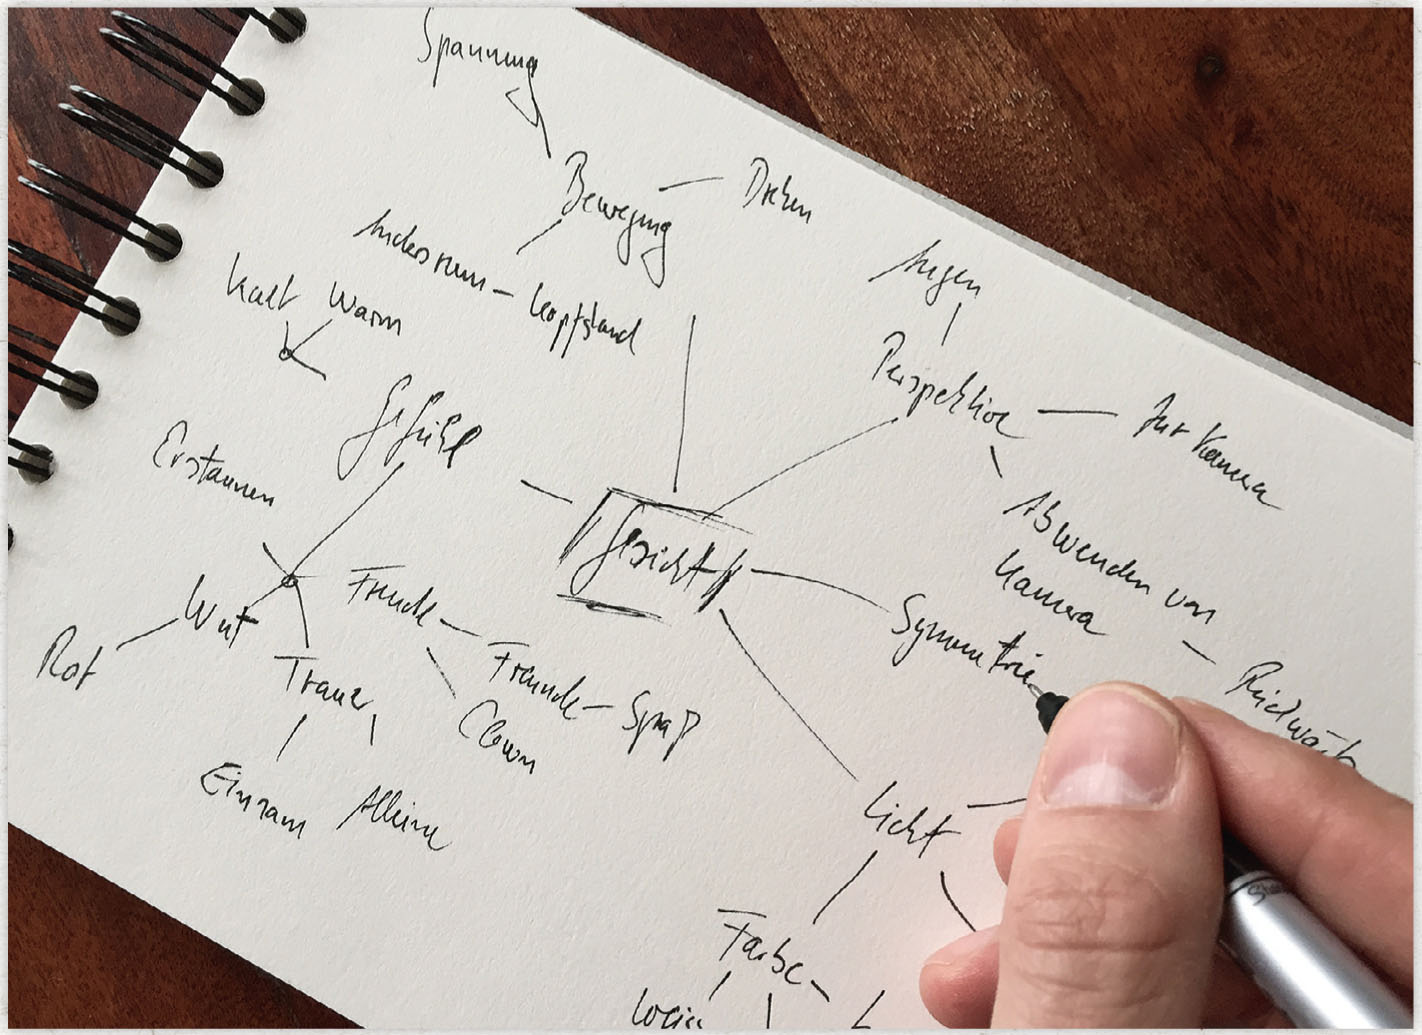 Spannung
Bewegung
Drehen
Andersrum – Kopfstand
Augen
Perspektive
Zur Kamera
Abwenden von
Kamera
Kalt Warm
Gefühl
Erstaunen
Gesicht
Symmetrie
Wut
Rot
Freude
Freunde – Spaß
Clown
Trauer
Einsam
Alleine
Licht
Farbe